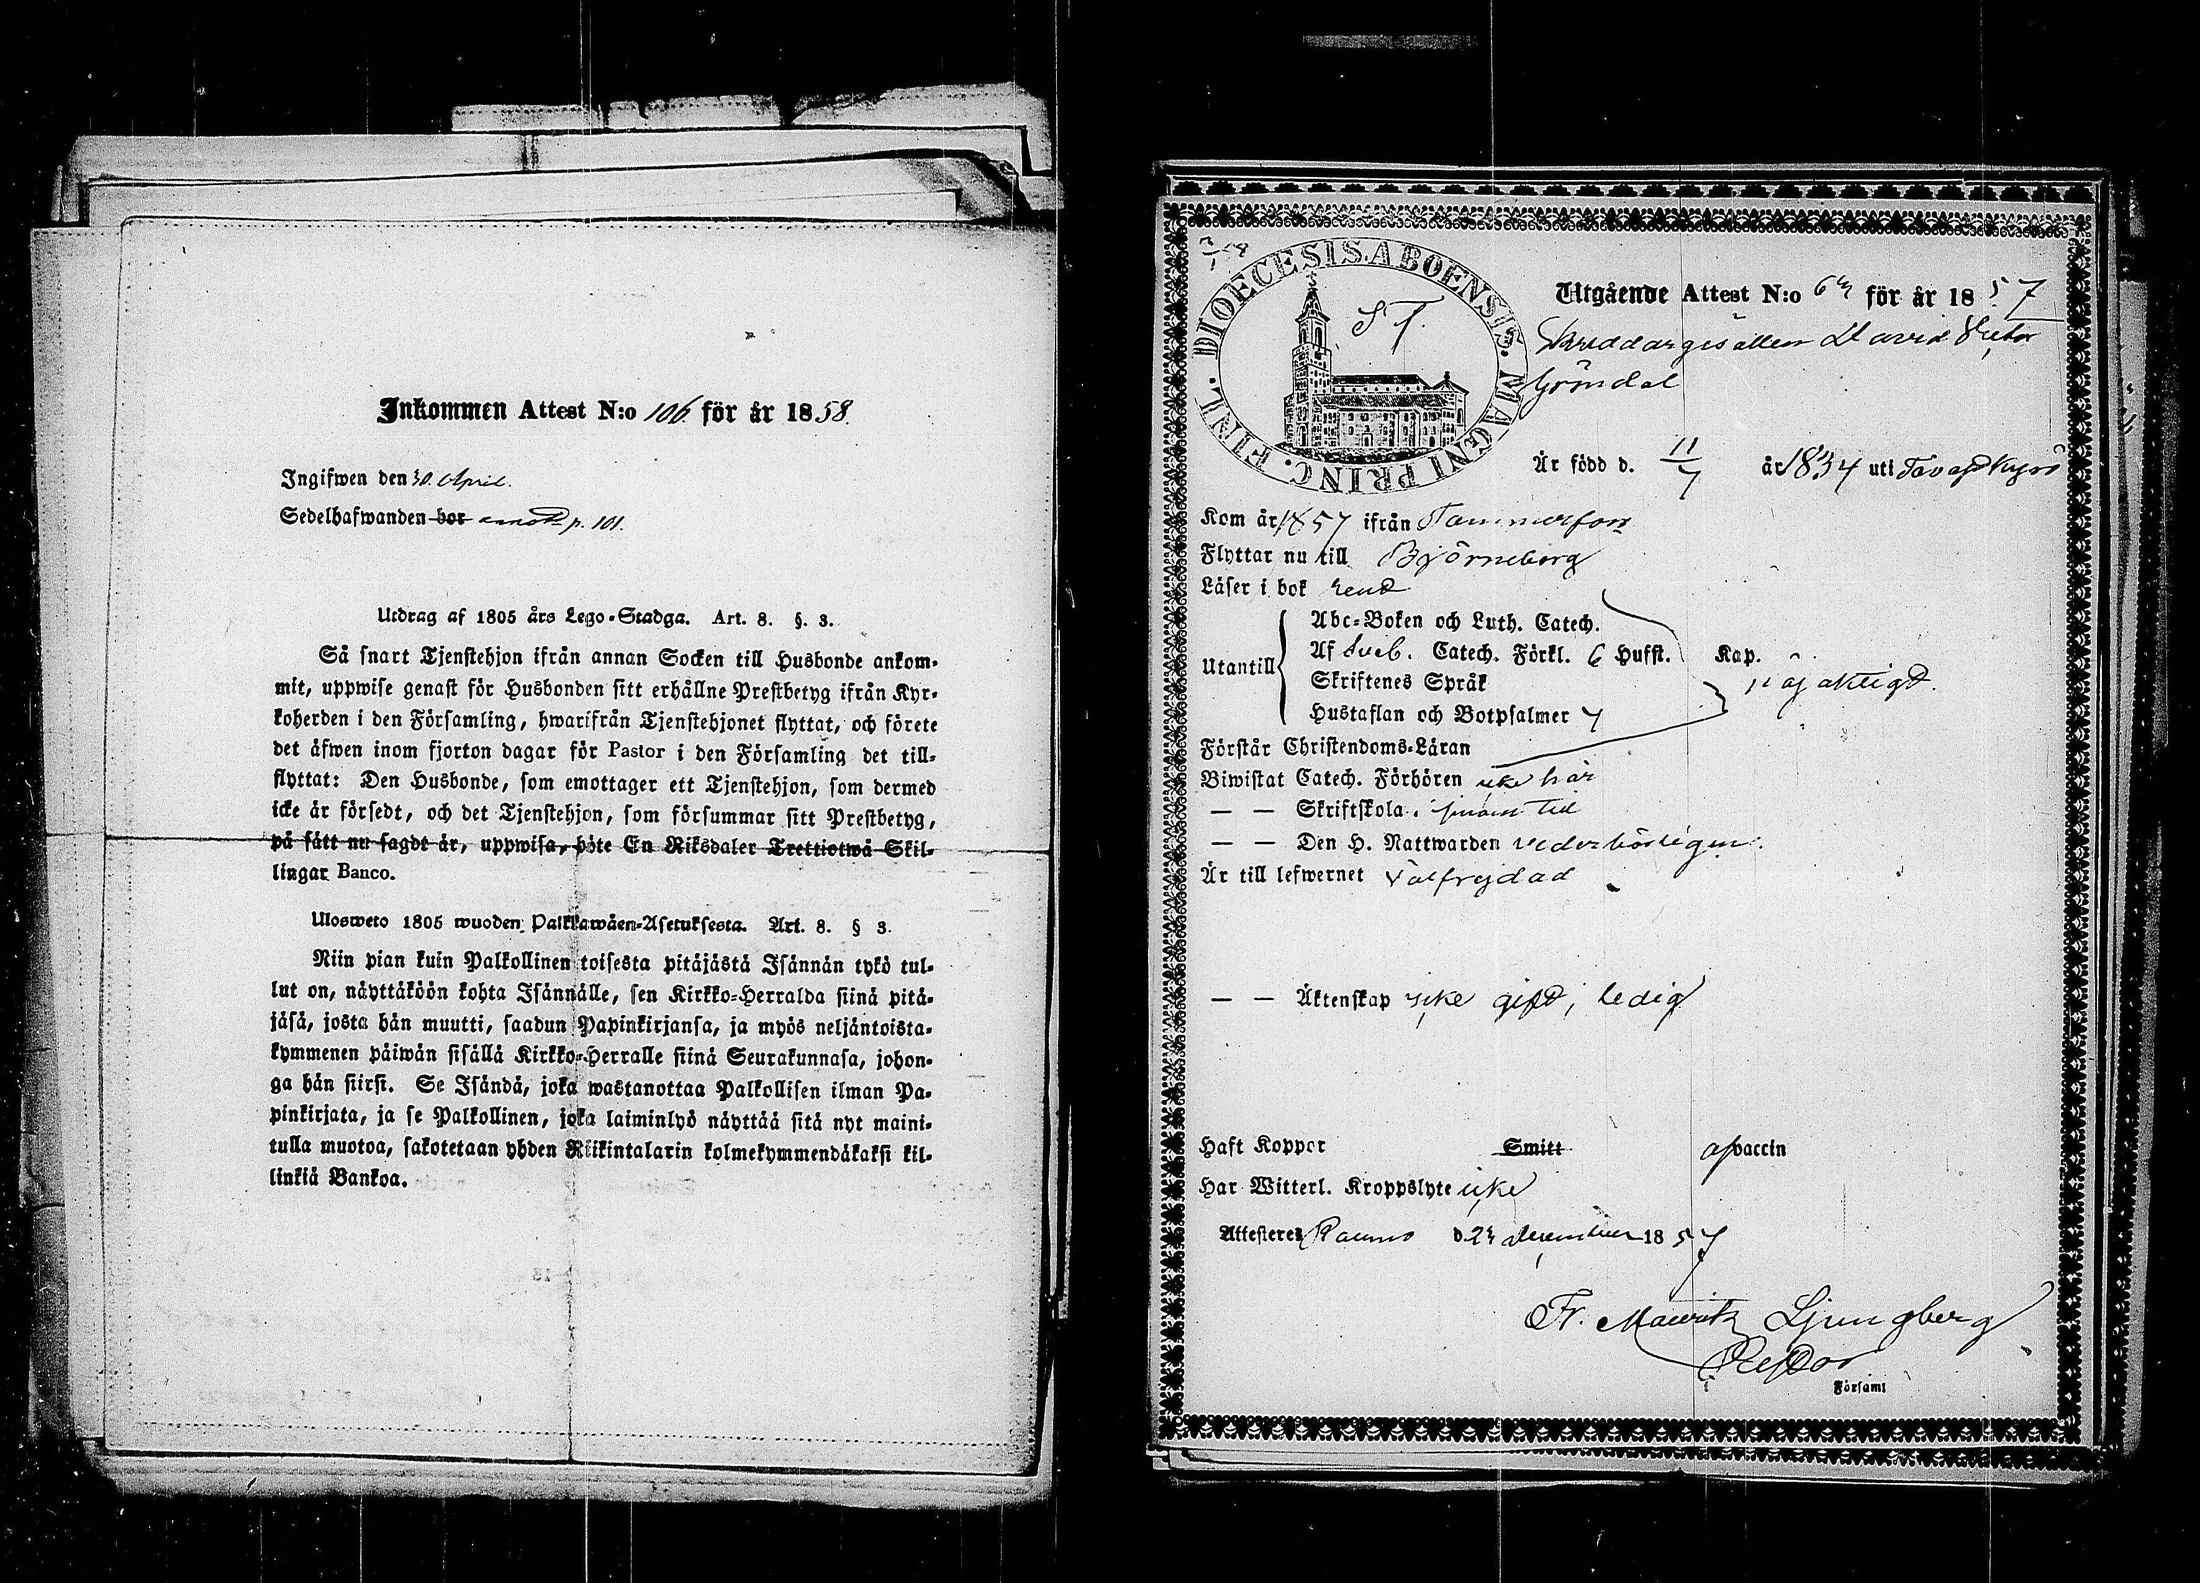 Inkommen Attest N:o 106 för år 1858.
Ingifwen den 30. April.
Sedelhafwanden bor p. 101.
Utdrag af 1805 års Lego-Stadga. Art. 8. §. 3.
Så snart Tjenstehjon ifrån annan Socken till Husbonde ankom-
mit, uppwise genast för Husbonden sitt erhållne Prestbetyg ifrån Kyr-
koherden i den Församling, hwarifrån Tjenstehjonet flyttat, och förete
det äfwen inom fjorton dagar för Pastor i den Församling det till-
flyttat: Den Husbonde, som emottager ett Tjenstehjon, som dermed
icke är försedt, och det Tjenstehjon, som försummar sitt Prestbetyg,
på sätt nu sagdt är, uppwisa, böte En Riksdaler Trettiotwå Skil-
lingar Banco.
Ulosweto 1805 wuoden Palkkawäen-Asetuksesta. Art. 8. § 3.
Niin pian kuin Palkollinen toisesta pitäjästä Isännän tykö tul-
lut on, näyttäköön kohta Isännälle, sen Kirkko-Herralda siinä pitä-
jäsä, josta hän muutti, saadun Papinkirjansa, ja myös neljäntoista-
kymmenen päiwän sisällä Kirkko-Herralle siinä Seurakunnasa, johon-
ga hän siirsi. Se Isändä, joka wastanottaa Palkollisen ilman Pa-
pinkirjata, ja se Palkollinen, joka laiminlyö näyttää sitä nyt maini-
tulla muotoa, sakotetaan yhden Riikintalarin kolmekymmendäkaksi kil-
linkiä Bankoa.
DIOECESIS ABOENSIS. MAGNI PRINC. FINL.
S T.
Utgående Attest N:o 63 för år 1857
Skreddargesällen David Victor
Gröndal
Är född d. 11/7 år 1834 uti Tavastkyro
Kom år 1857 ifrån Tammerfors
Flyttar nu till Björneborg
Läser i bok rent
Utantill
Abc-Boken och Luth. Catech.
Af Sveb. Catech. Förkl. 6 Hufst. Kap.
Skriftenes Språk
Hustaflan och Botpsalmer 7
nöjaktigt.
Förstår Christendoms-Läran
Biwistat Catech. Förhören icke här
— — Skriftskola i sinom tid
— — Den H. Nattwarden vederbörligen.
Är till lefwernet välfrejdad
— — Äktenskap icke gift, ledig
Haft Koppor Smitt af vaccin
Har Witterl. Kroppslyte icke
Attesteres Raumo d. 23 december 1857
Fr. Mauritz Ljungberg
Pastor
i Församl